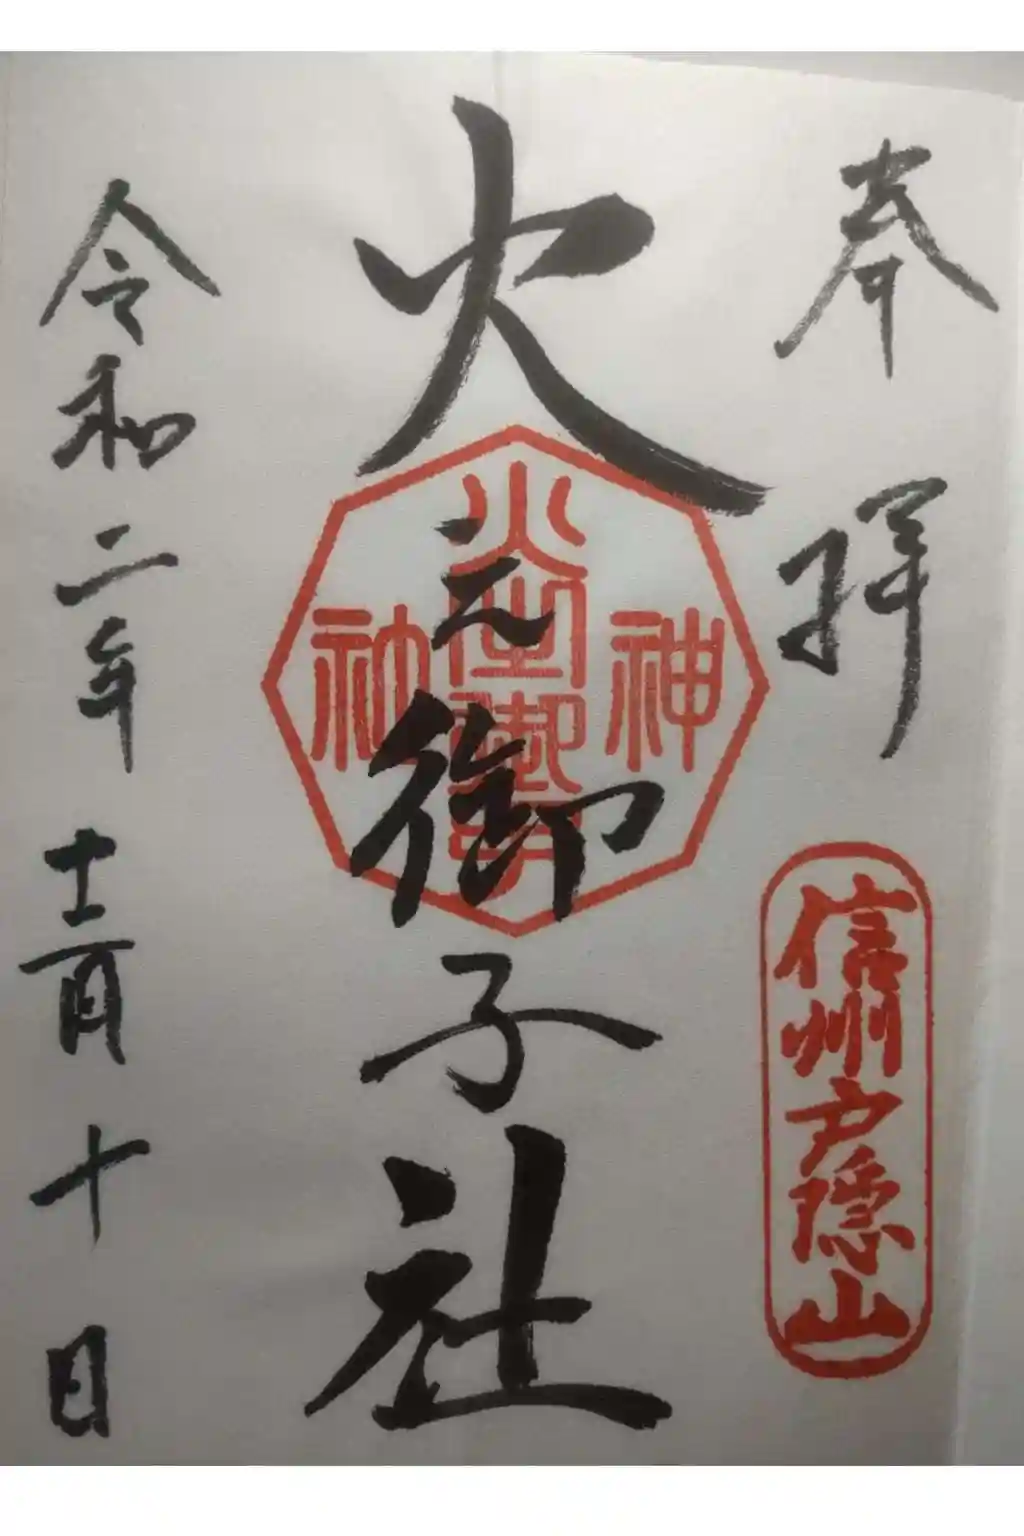 奉拝
信州戸隠山
火之御子社
神
火之御子
社
令和二年十二月十日